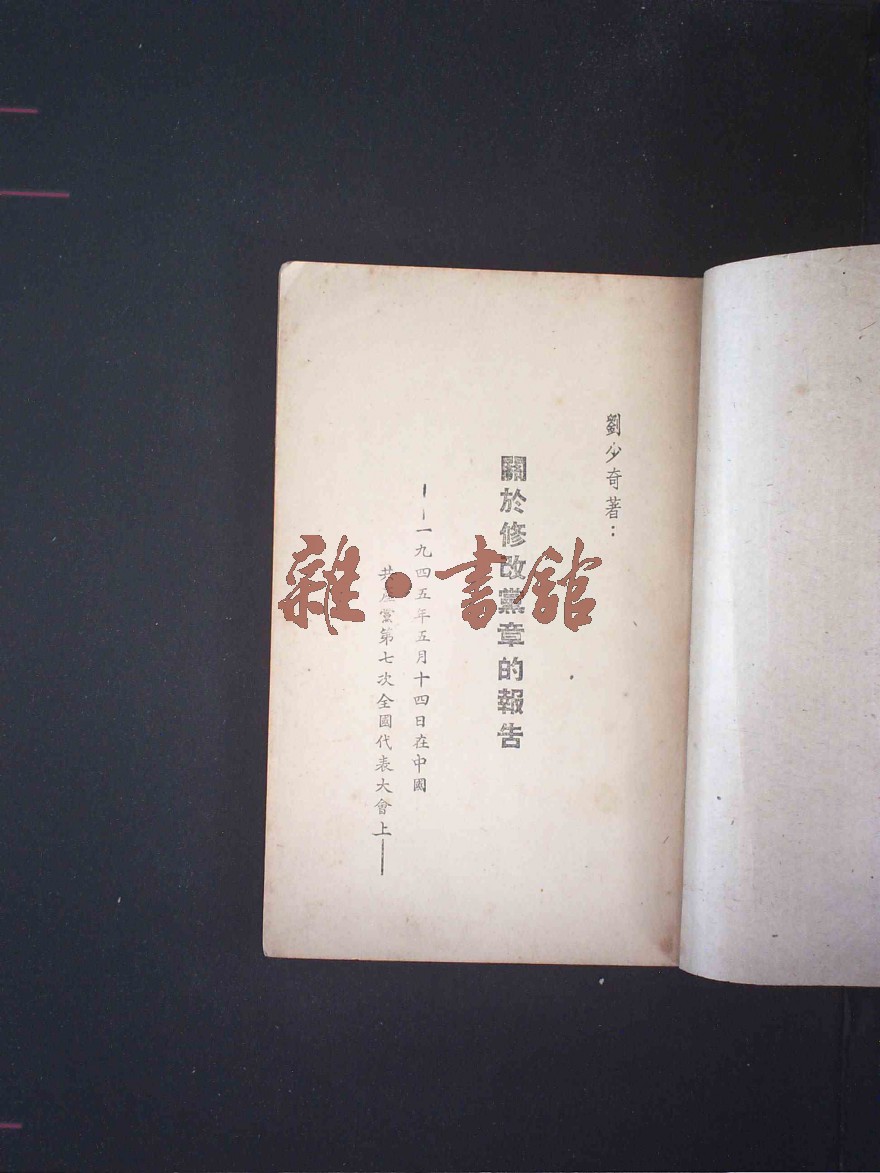 劉少奇著：
關於修改黨章的報告
——一九四五年五月十四日在中國
共產黨第七次全國代表大會上——
雜·書館